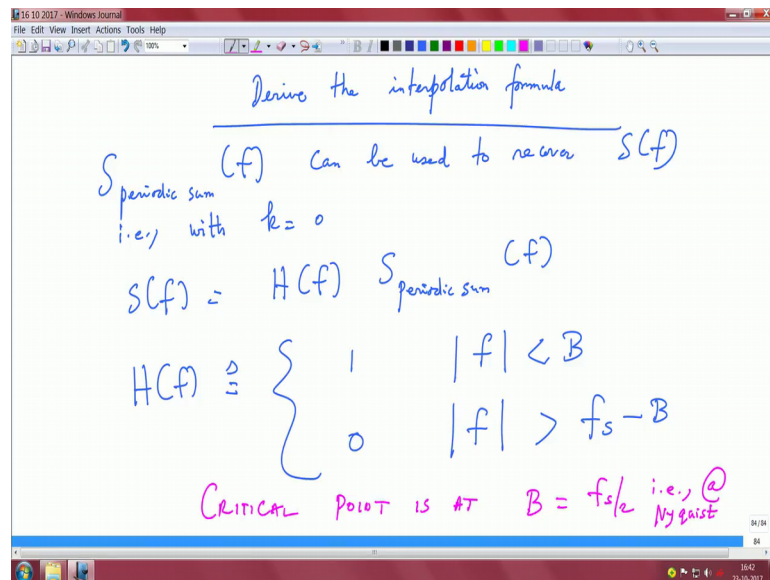 16 10 2017 - Windows Journal
File Edit View Insert Actions Tools Help
100%
Derive the interpolation formula
S periodic sum (f) can be used to recover S(f)
i.e., with k = 0
S(f) = H(f) S periodic sum (f)
H(f) ≜ { 1 |f| < B
0 |f| > fs - B
CRITICAL POIOT IS AT B = fs/2 i.e., @ Nyquist
84/84
84
16:42
23-10-2017